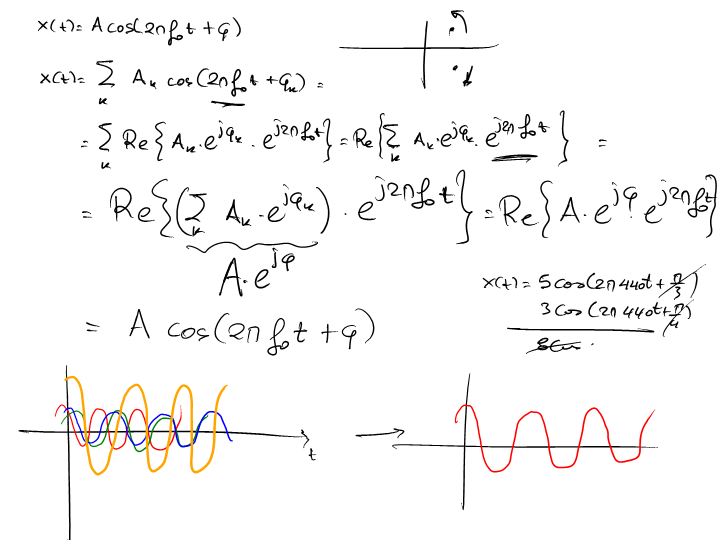 x(t)= A cos(2πf₀t + φ)
x(t)= ∑ₖ Aₖ cos(2πf₀t + φₖ) =
= ∑ₖ Re{Aₖ·e^{jφₖ} · e^{j2πf₀t}} = Re{∑ₖ Aₖ·e^{jφₖ} · e^{j2πf₀t}} =
= Re{(∑ₖ Aₖ·e^{jφₖ}) · e^{j2πf₀t}} = Re{A·e^{jφ} · e^{j2πf₀t}}
A·e^{jφ}
x(t)= 5cos(2π440t + π/3)
3cos(2π440t + π/4)
= A cos(2πf₀t + φ)
t